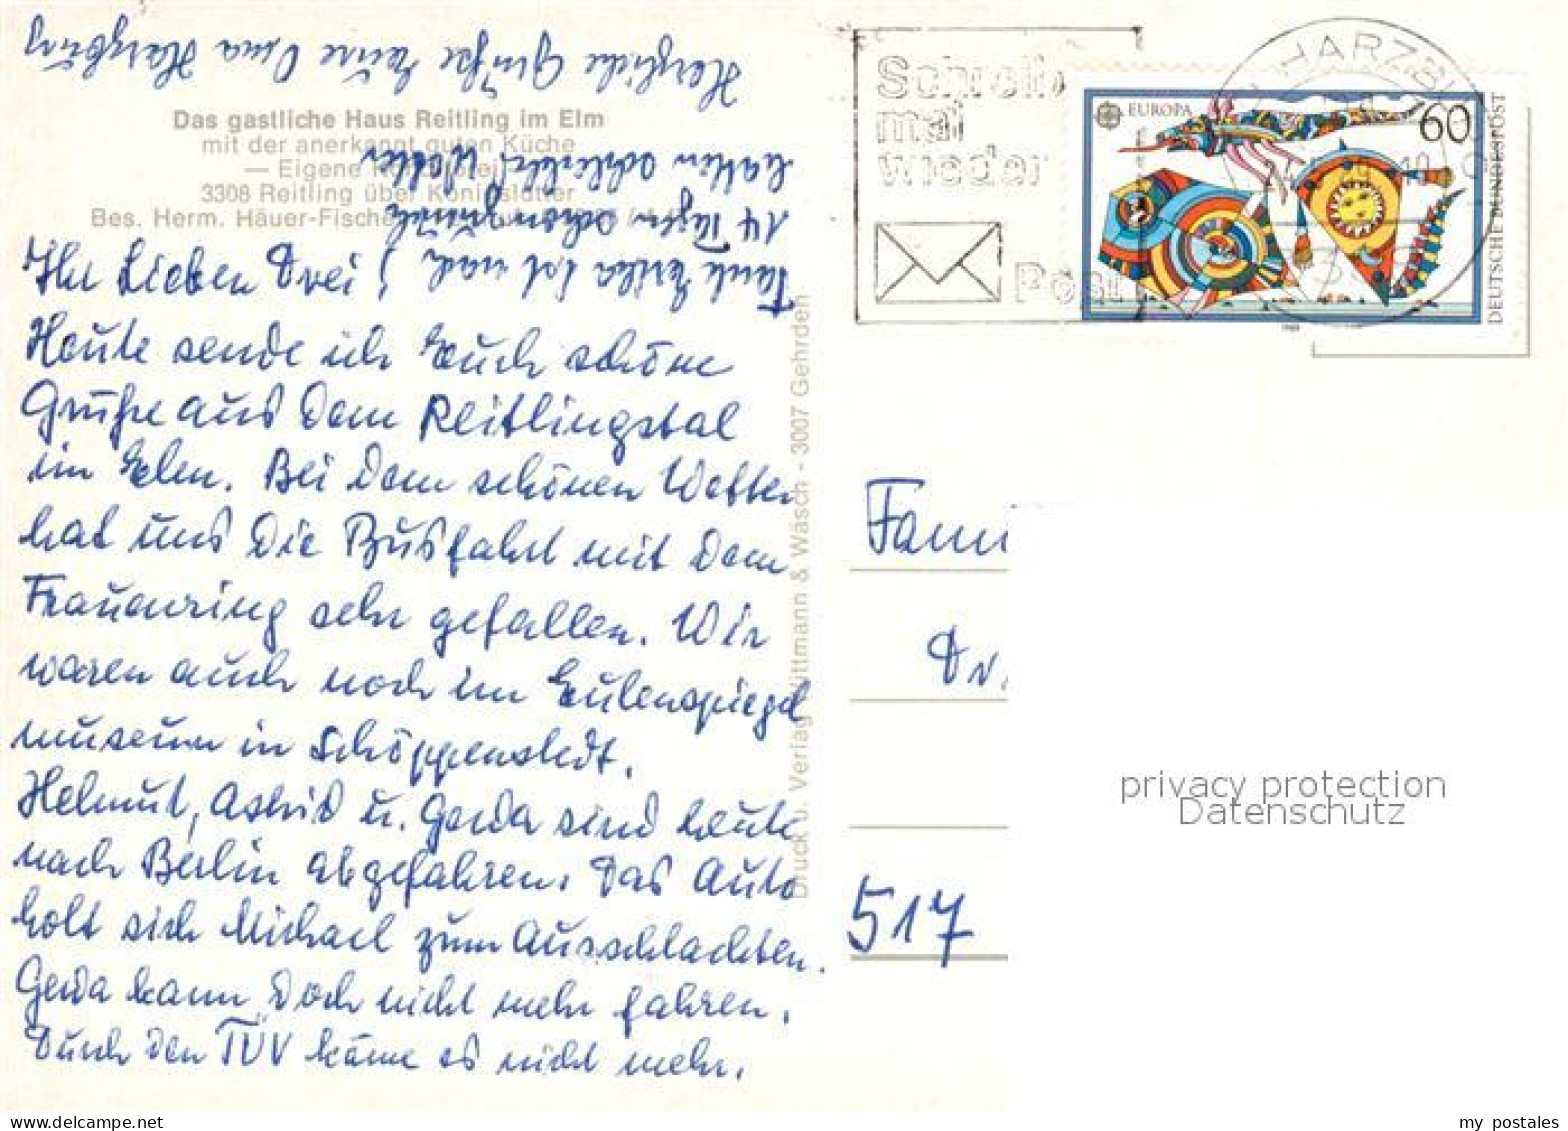 Das gastliche Haus Reitling im Elm
mit der anerkannt guten Küche
— Eigene
3308 Reitling über Königslutter
Bes. Herm. Häuer-Fische
Ihr Lieben Drei!
Heute sende ich Euch schöne
Grüße aus dem Reitlingstal
im Elm. Bei dem schönen Wetter
hat uns die Busfahrt mit dem
Frauenring sehr gefallen. Wir
waren auch noch im Eulenspiegel
museum in Schöppenstedt.
Helmut, Astrid u. Gerda sind heute
nach Berlin abgefahren. Das Auto
holt sich Michael zum Ausschlachten.
Gerda kann doch nicht mehr fahren.
Durch den TÜV käme es nicht mehr.
Tante Erika ist nach
14 Tagen schon zurück
hatten schlechtes Wetter
Herzliche Grüße Eure Oma Harzburg
Druck u. Verlag Wittmann & Wäsch - 3007 Gehrden
Schreib
mal
wieder
Post
HARZB
EUROPA
60
DEUTSCHE BUNDESPOST
1989
Fami
Dr.
517
privacy protection
Datenschutz
my postales